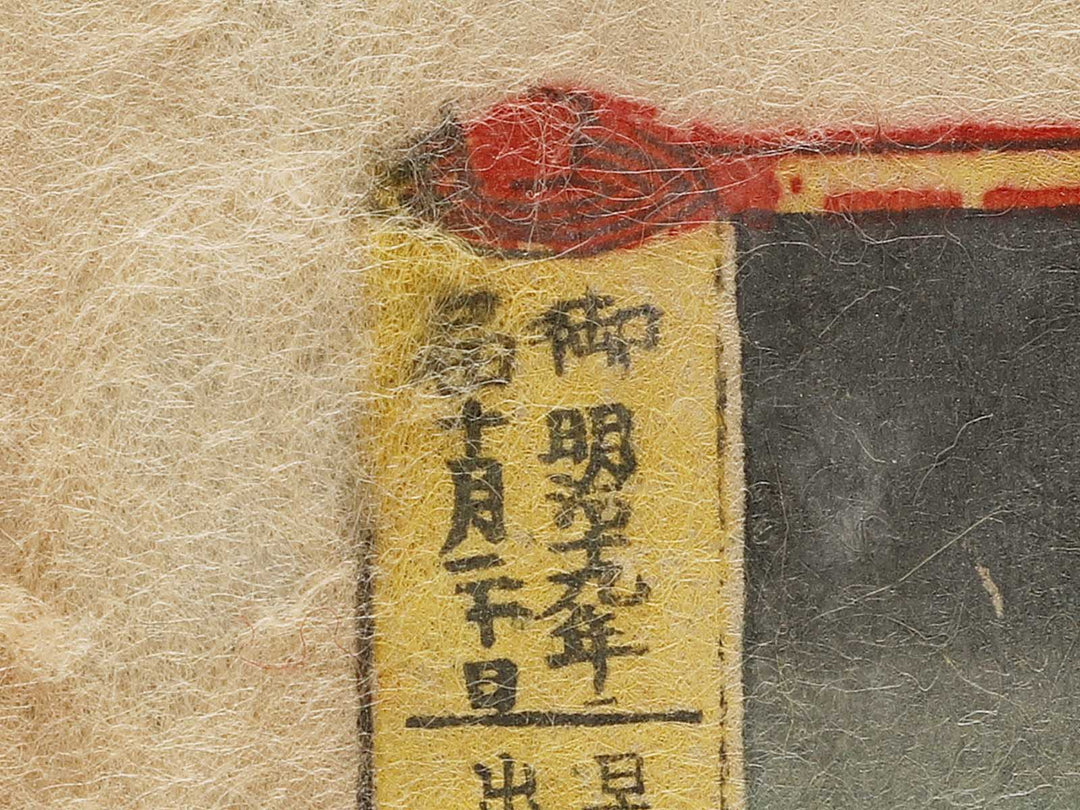 御 明治十九年
届 十月二十日
出